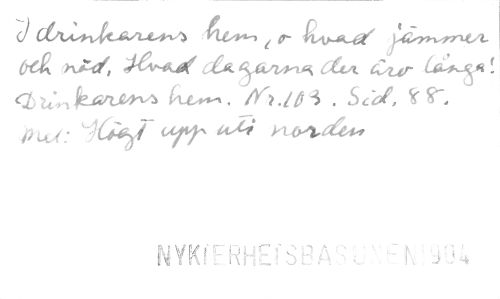 I drinkarens hem, o hvad jämmer
och nöd. Hvad dagarna der äro långa!
Drinkarens hem. Nr. 103. Sid. 88.
Mel: Högt upp uti norden
NYKTERHETSBASUNEN 1904